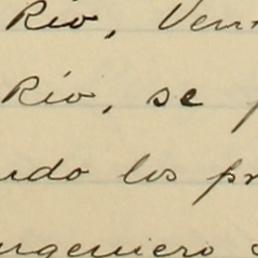 Rio, Ven
Rio, se p
ndo los pr
ngeniero